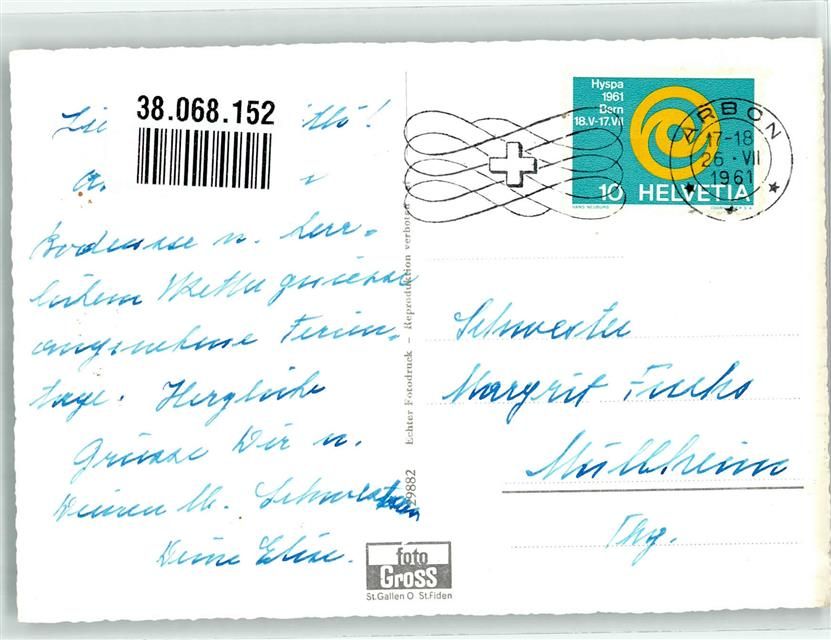 38.068.152
Bodensee u. herr-
lichem Wetter geniesse
angenehme Ferien-
tage. Herzliche
Grüsse Dir u.
Deinen lb. Schwestern
Deine Elise.
Echter Fotodruck – Reproduktion verboten
29882
foto
Gross
St.Gallen O St.Fiden
Hyspa
1961
Bern
18.V-17.VII
10 HELVETIA
ARBON
17-18
26·VII
1961
Schwester
Margrit Fuchs
Müllheim
Thg.